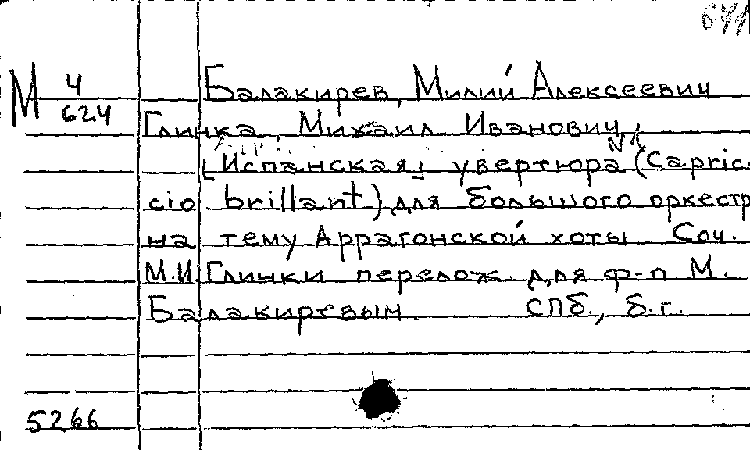 641
М 4
624
Балакирев, Милий Алексеевич
Глинка, Михаил Иванович,
[Испанская] увертюра №1 (Capric
cio brillant) для большого оркестр
на тему Аррагонской хоты Соч.
М.И.Глинки перелож. для ф-п М.
Балакиревым. СПб, б.г.
5266